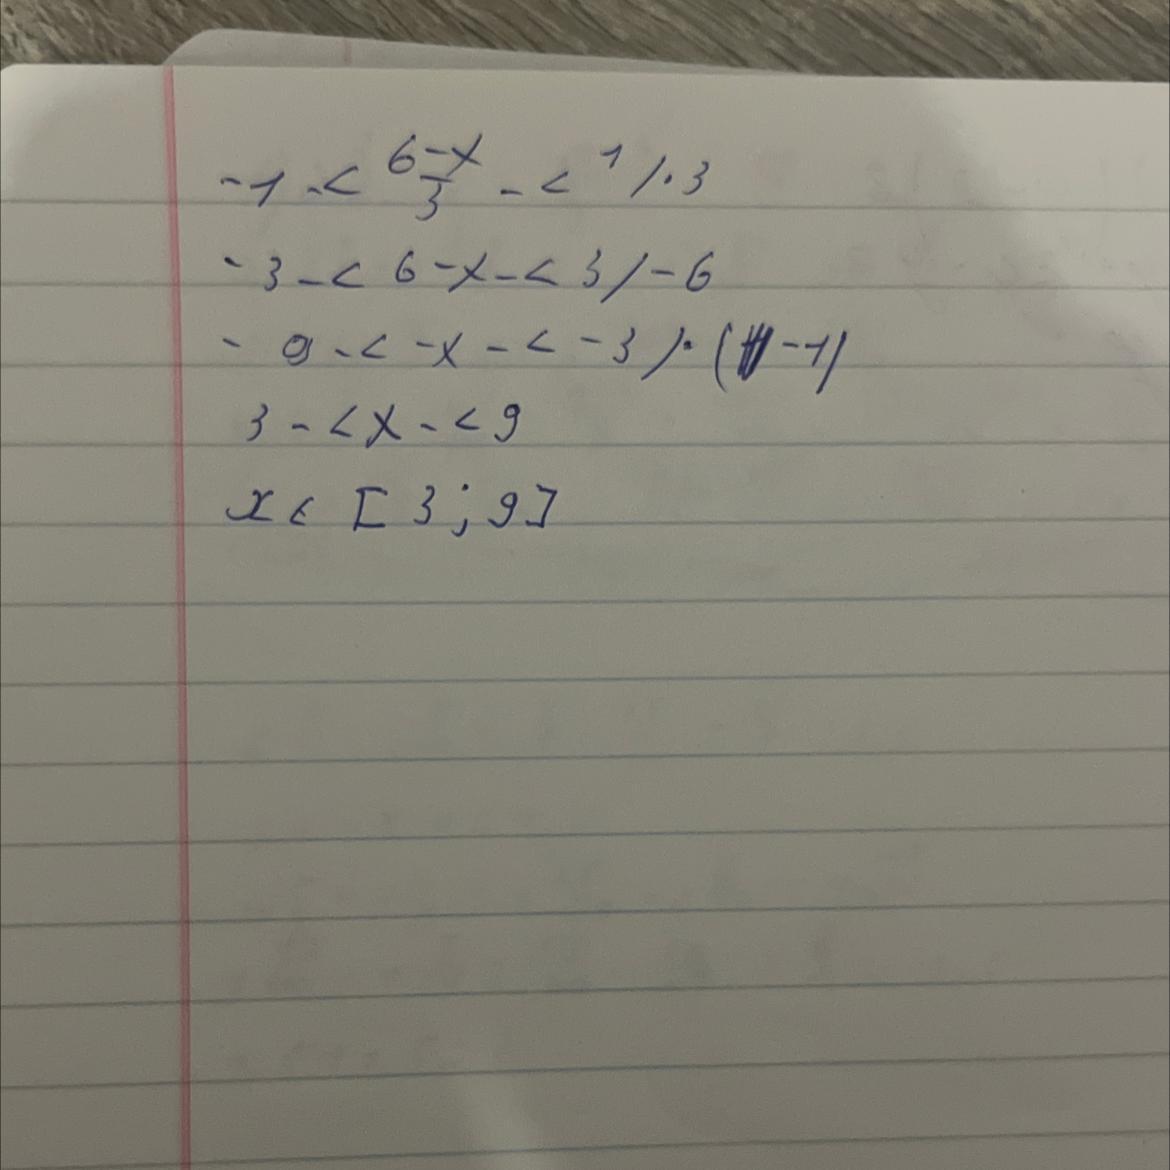 -1 -< 6-x/3 -< 1 /·3
-3 -< 6-x -< 3 /-6
-9 -< -x -< -3 /·(-1)
3 -< x -< 9
x ∈ [3;9]